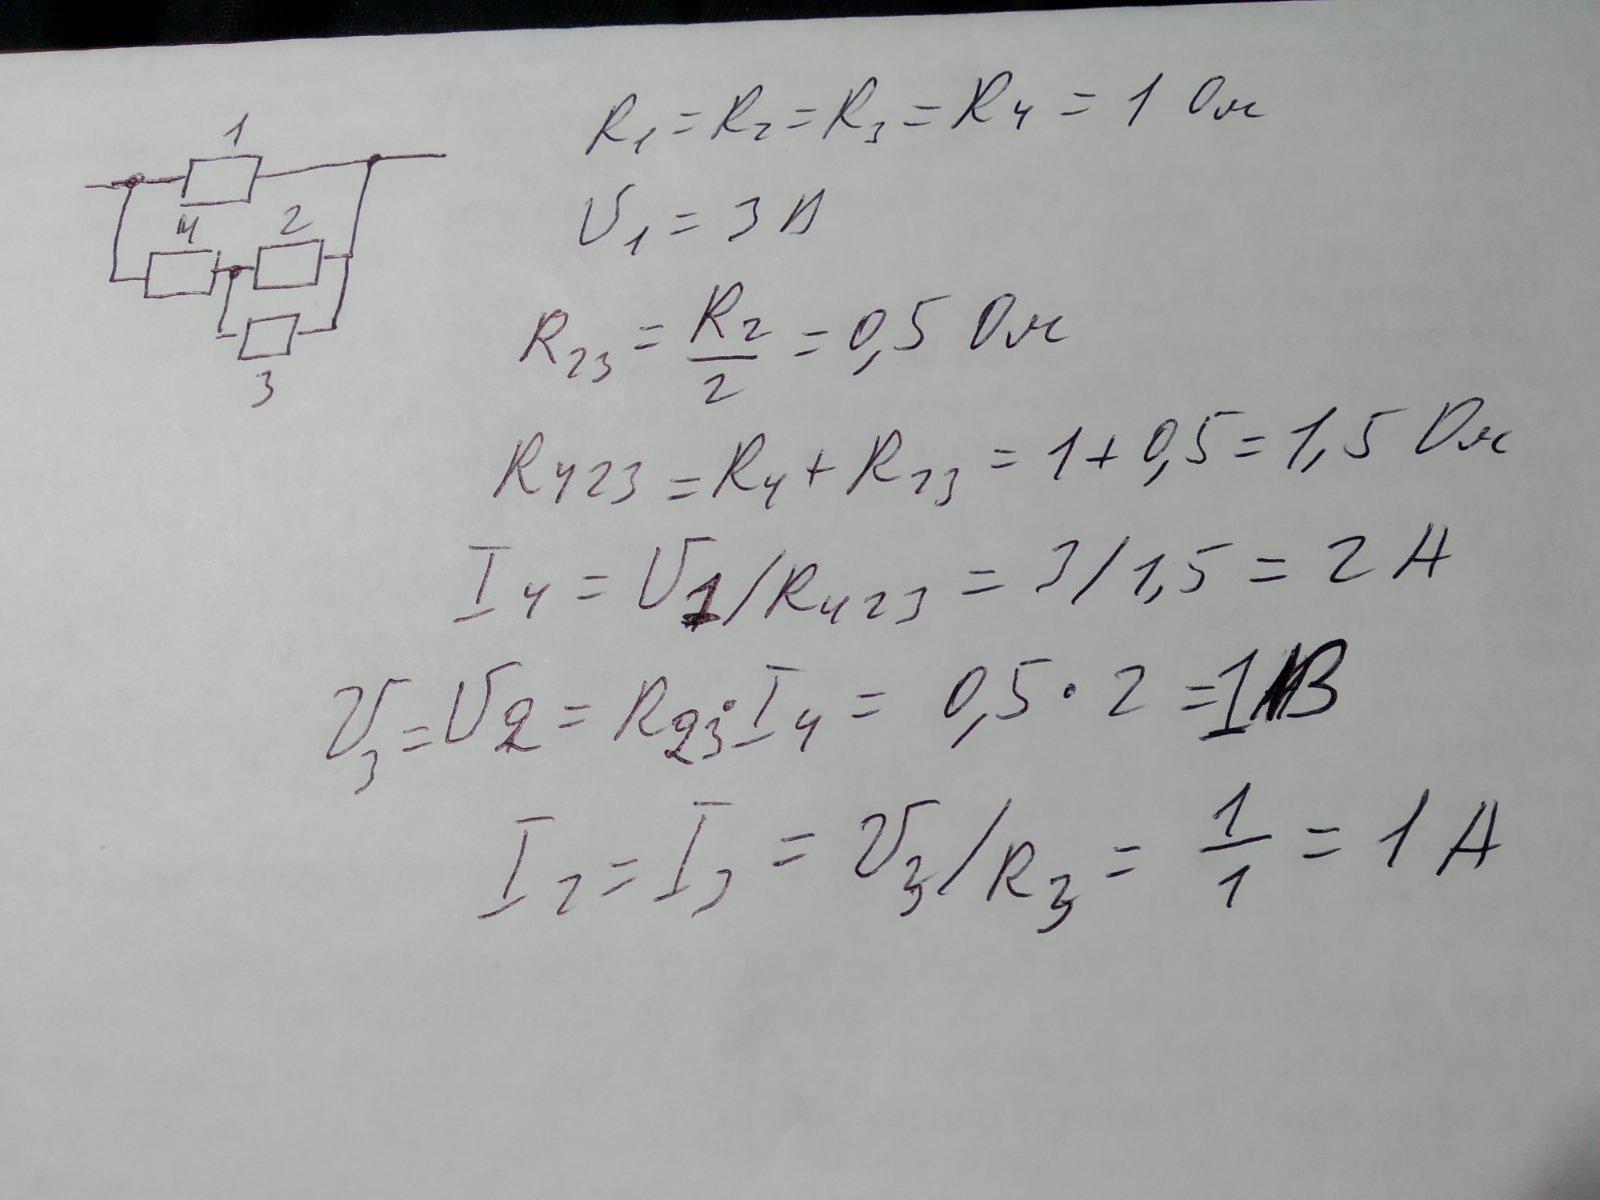 1
4 2
3
R₁ = R₂ = R₃ = R₄ = 1 Ом
U₁ = 3 В
R₂₃ = R₂/2 = 0,5 Ом
R₄₂₃ = R₄ + R₂₃ = 1 + 0,5 = 1,5 Ом
I₄ = U₁/R₄₂₃ = 3/1,5 = 2 А
U₃ = U₂ = R₂₃·I₄ = 0,5·2 = 1 В
I₂ = I₃ = U₃/R₃ = 1/1 = 1 А